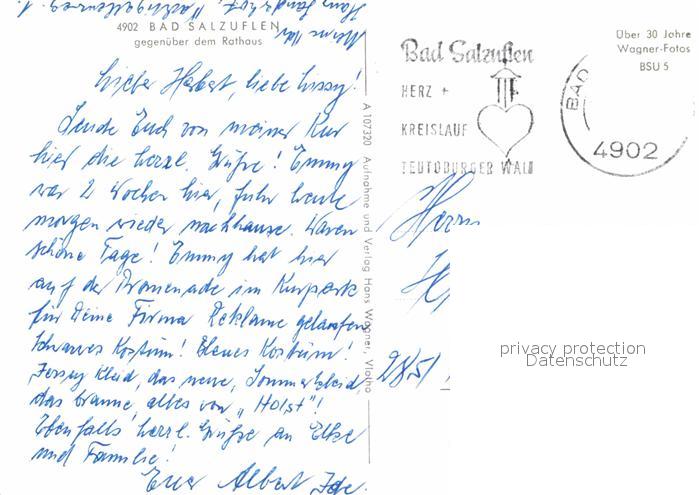 4902 BAD SALZUFLEN
gegenüber dem Rathaus
Lieber Herbert, liebe Lissy!
Sende Euch von meiner Kur
hier die herzl. Grüße! Emmy
war 2 Wochen hier, fuhr heute
morgen wieder nachhause. Waren
schöne Tage! Emmy hat hier
auf der Promenade im Kurpark
für Deine Firma Reklame gelaufen
Schwarzes Kostüm! Blaues Kostüm!
Jersey Kleid, das neue, Sommerkleid
das braune, alles von „Holst"!
Ebenfalls herzl. Grüße an Elke
und Familie!
Euer Albert
A 107320 Aufnahme und Verlag Hans Wagner, Vlotho
Bad Salzuflen
HERZ +
KREISLAUF
TEUTOBURGER WALD
BAD
4902
Über 30 Jahre
Wagner-Fotos
BSU 5
Herrn
H
2851
privacy protection
Datenschutz